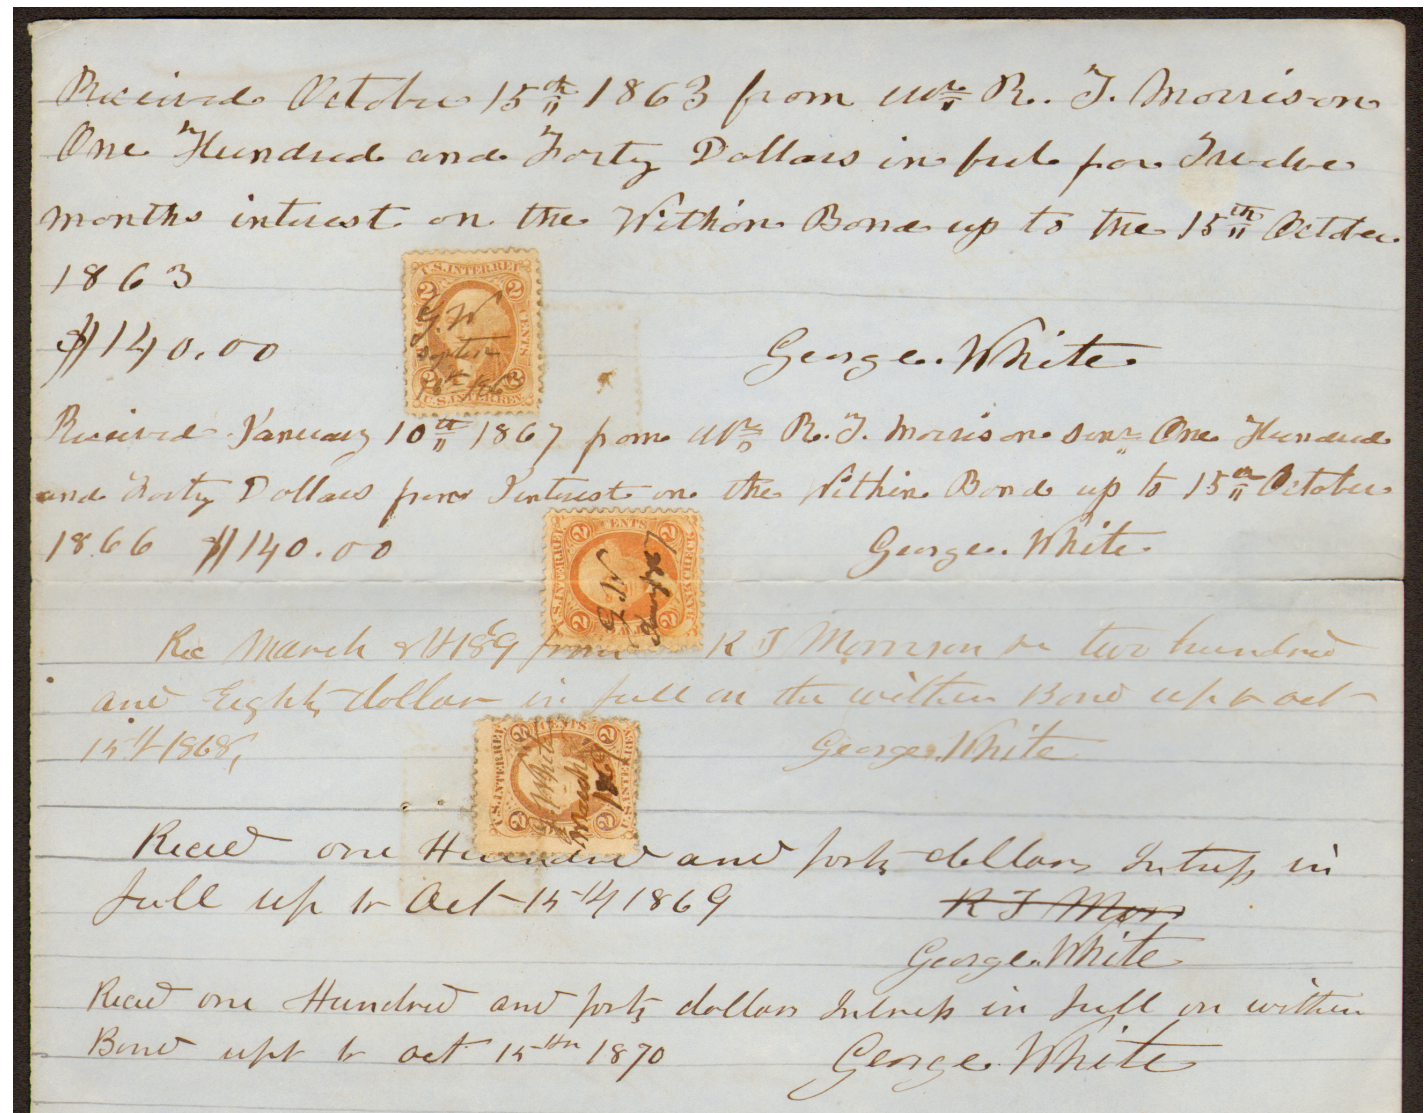 Received October 15th 1863 from Mr. R. T. Morrison
One Hundred and Forty Dollars in full for Twelve
months interest on the Within Bond up to the 15th October
1863
$140.00
George White
U.S. INTER. REV.
2 2
CENTS
G. W
2 2
U.S. INTER. REV.
Received January 10th 1867 from Mr. R. T. Morrison One Hundred
and Forty Dollars for Interest on the Within Bond up to 15th October
1866 $140.00
George White
U.S. INTER. REV.
2 CENTS 2
BANK CHECK
G W
2 2
Rec March from R T Morrison sr two hundred
and Eighty dollars in full on the within Bond up to oct
15th 1868,
George White
U.S. INTER. REV.
2 CENTS 2
G White
March
1869
2 2
U.S. INTER. REV.
Recd one Hundred and forty dollars Intress in
full up to Oct 15th 1869
R T Morr
George White
Recd one Hundred and forty dollars Intress in full on within
Bond upt to oct 15th 1870
George White